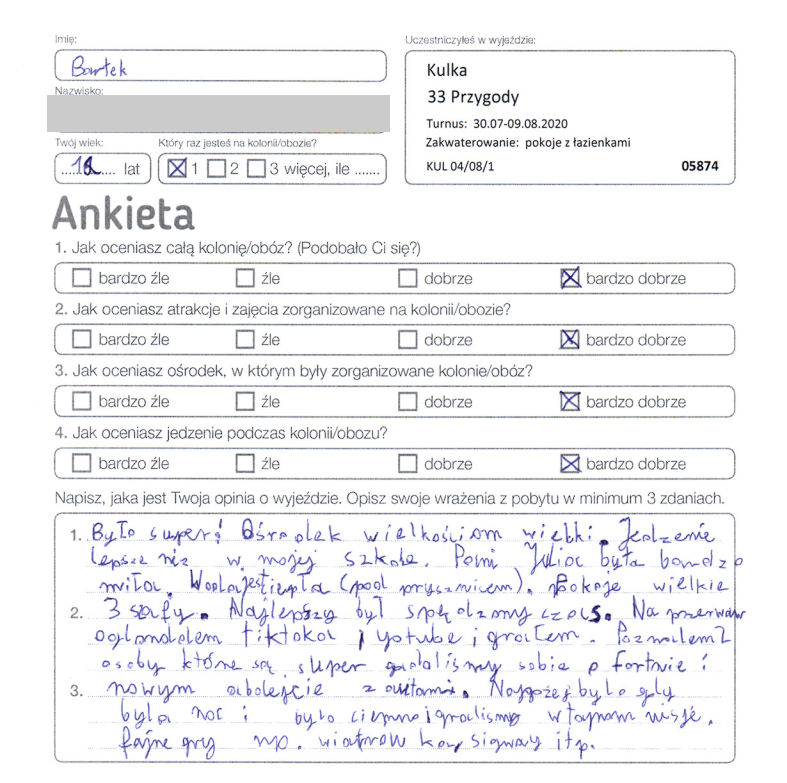 Imię:
Bartek
Nazwisko:
Twój wiek:
12 lat
Który raz jesteś na kolonii/obozie?
1 2 3 więcej, ile .......
Uczestniczyłeś w wyjeździe:
Kulka
33 Przygody
Turnus: 30.07-09.08.2020
Zakwaterowanie: pokoje z łazienkami
KUL 04/08/1 05874
Ankieta
1. Jak oceniasz całą kolonię/obóz? (Podobało Ci się?)
bardzo źle źle dobrze bardzo dobrze
2. Jak oceniasz atrakcje i zajęcia zorganizowane na kolonii/obozie?
bardzo źle źle dobrze bardzo dobrze
3. Jak oceniasz ośrodek, w którym były zorganizowane kolonie/obóz?
bardzo źle źle dobrze bardzo dobrze
4. Jak oceniasz jedzenie podczas kolonii/obozu?
bardzo źle źle dobrze bardzo dobrze
Napisz, jaka jest Twoja opinia o wyjeździe. Opisz swoje wrażenia z pobytu w minimum 3 zdaniach.
1. Było super! Ośrodek wielkościom wielki. Jedzenie
lepsze niż w mojej szkole. Pani Julia była bardzo
miła. Woda jest ciepła (pod prysznicem). Pokoje wielkie
2. 3 szafy. Najlepszy był spędzony czas. Na przerwaw
oglondałem tiktoka, yotube i grałem. Poznałem 2
osoby które są super gadaliśmy sobie o fortnie i
3. nowym abdejcie z autami. Najgożej było gdy
była noc i było ciemno i graliśmy w tajnom misje.
fajne gry np. wiatrówka, sigway itp.